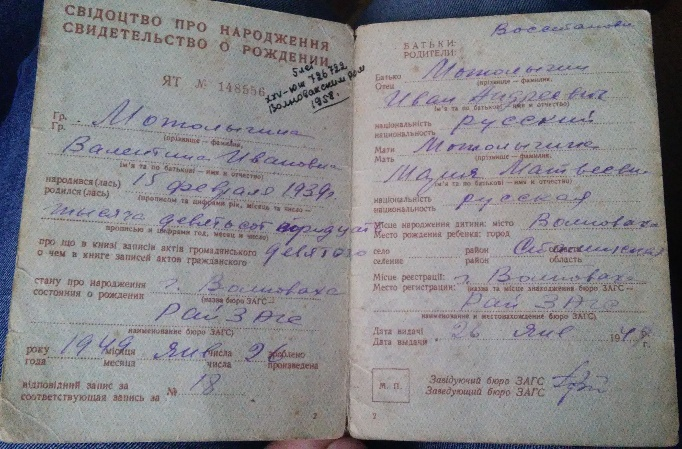 СВІДОЦТВО ПРО НАРОДЖЕННЯ
СВИДЕТЕЛЬСТВО О РОЖДЕНИИ
ЯТ № 148556
XIV-ЮШ 726722
1958.
Гр. Мотолыгина
Гр.
(прізвище — фамилия,
Валентина Ивановна
ім'я та по батькові — имя и отчество)
народився(лась) 15 февраля 1939г.
родился(лась) (прописом та цифрами рік, місяць та число —
тысяча девятьсот тридцать
прописью и цифрами год, месяц и число)
про що в книзі записів актів громадянського девятого
о чем в книге записей актов гражданского
стану про народження г. Волноваха
состояния о рождении (назва бюро ЗАГС —
Рай ЗАГС
наименование бюро ЗАГС)
року 1949 місяця янв числа 26 зроблено
года месяца числа произведена
відповідний запис за № 18
соответствующая запись за
2
Восстановл
БАТЬКИ:
РОДИТЕЛИ:
Батько Мотолыгин
Отец (прізвище — фамилия,
Иван Андреевич
ім'я та по батькові — имя и отчество)
національність русский
национальность
Мати Мотолыгина
Мать (прізвище — фамилия,
Мария Матвеевна
ім'я та по батькові — имя и отчество)
національність русская
национальность
Місце народження дитини: місто Волноваха
Место рождения ребенка: город
село район область
селение район область
Місце реєстрації: г. Волноваха
Место регистрации: (назва та місце знаходження бюро ЗАГС —
Рай ЗАГС
наименование и местонахождение бюро ЗАГС)
Дата видачі 26 янв 1949 г.
Дата выдачи
М. П.
Завідуючий бюро ЗАГС
Заведующий бюро ЗАГС
2